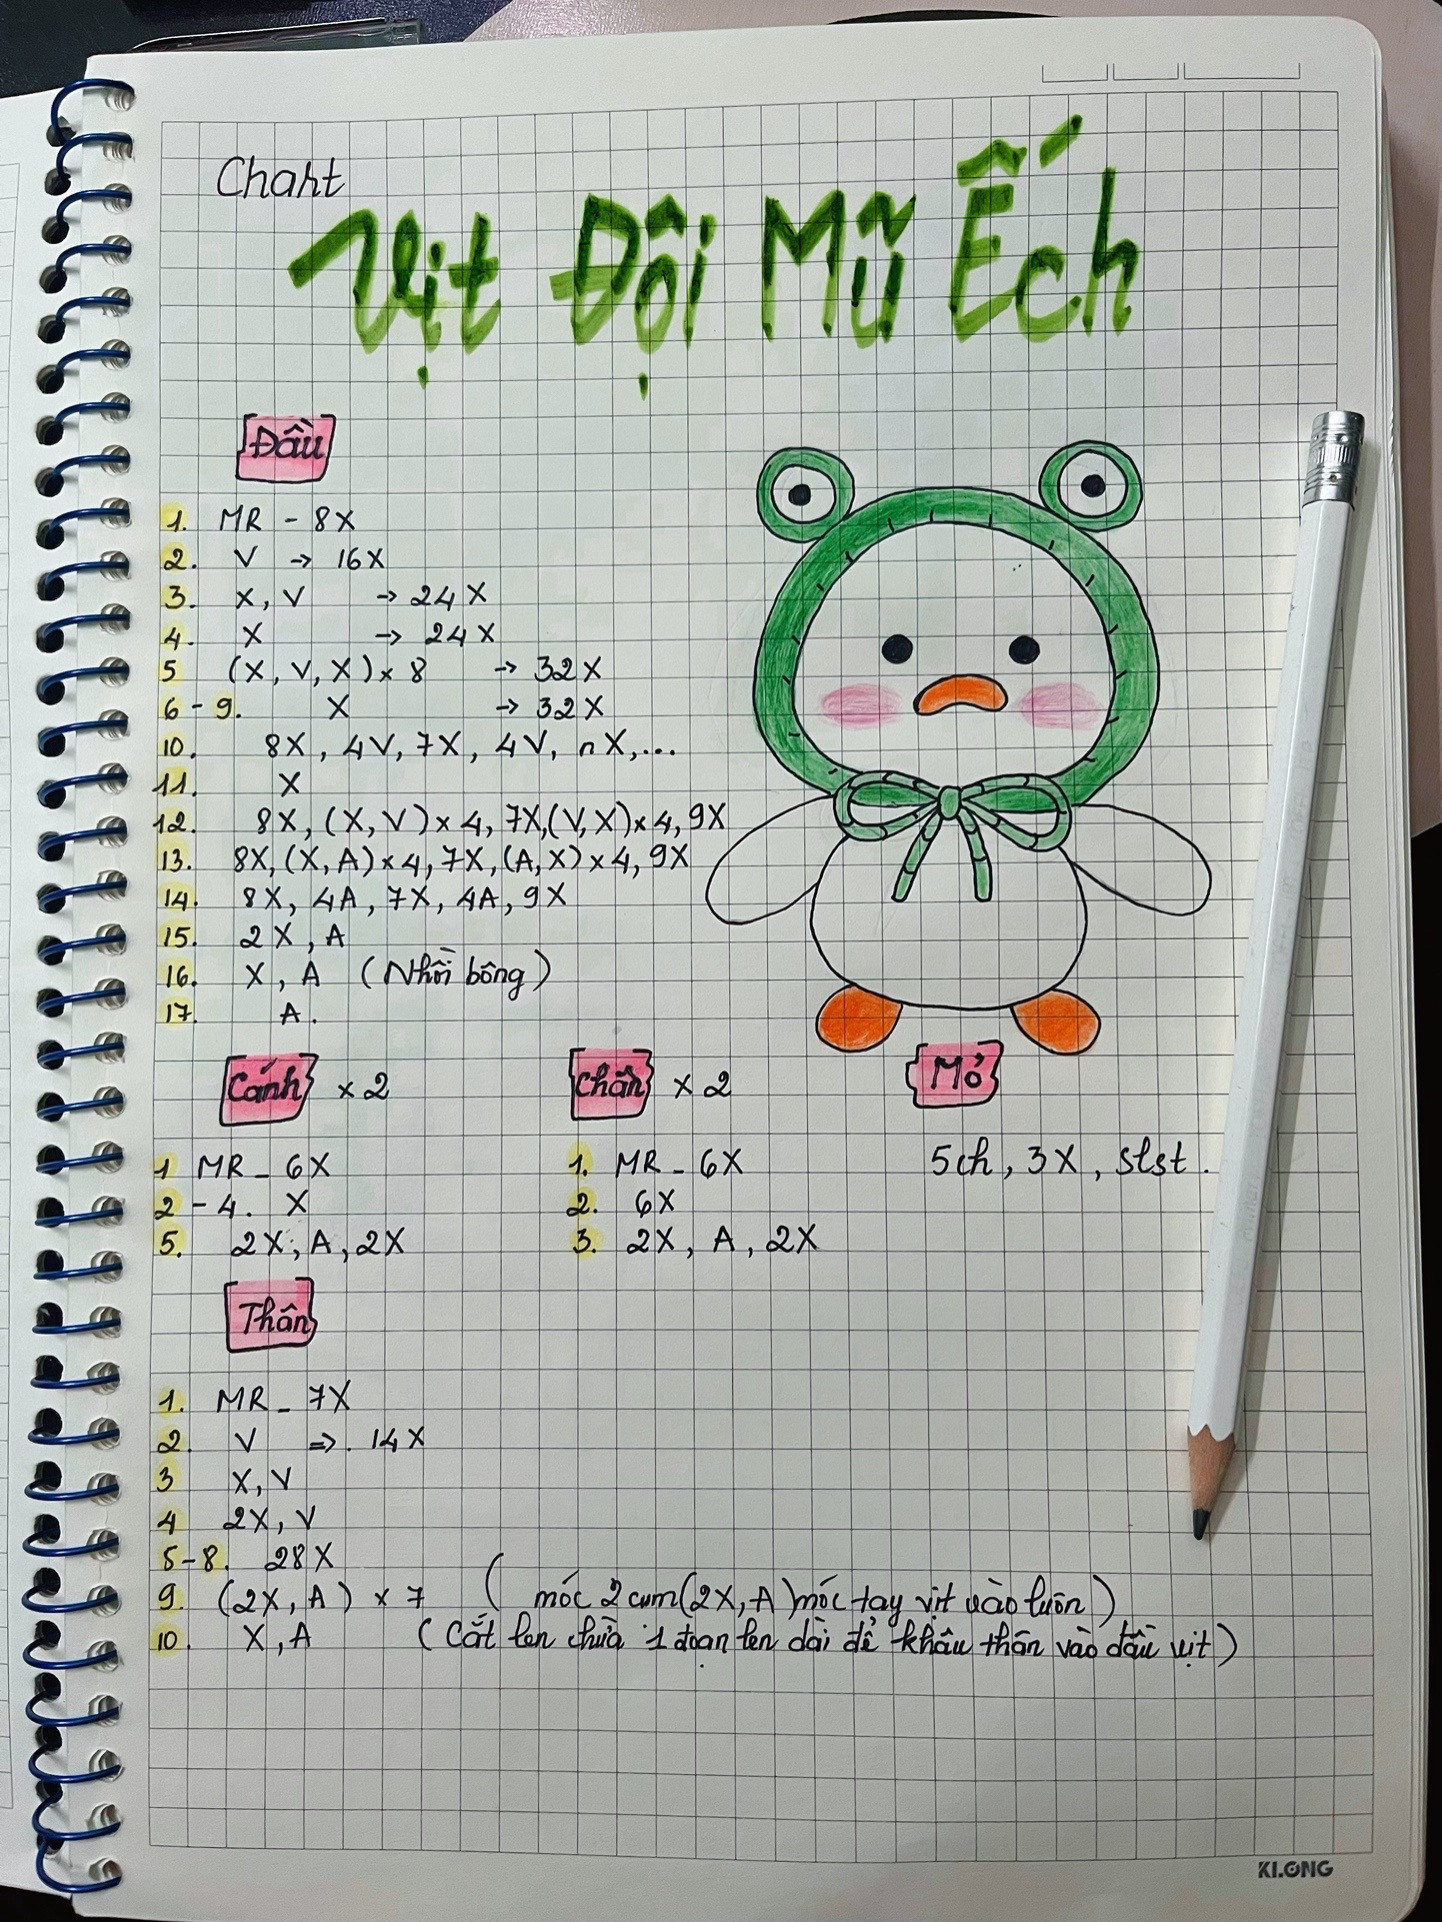 Chart
Vịt Đội Mũ Ếch
Đầu
1. MR - 8X
2. V → 16X
3. X, V → 24X
4. X → 24X
5 (X, V, X) x 8 → 32X
6 - 9. X → 32X
10. 8X, 4V, 7X, 4V, nX,...
11. X
12. 8X, (X, V) x 4, 7X, (V, X) x 4, 9X
13. 8X, (X, A) x 4, 7X, (A, X) x 4, 9X
14. 8X, 4A, 7X, 4A, 9X
15. 2X, A
16. X, A (Nhồi bông)
17. A.
Cánh x 2
1 MR - 6X
2 - 4. X
5. 2X, A, 2X
Chân x 2
1. MR - 6X
2. 6X
3. 2X, A, 2X
Mỏ
5ch, 3X, slst.
Thân
1. MR - 7X
2. V => . 14X
3 X, V
4 2X, V
5-8. 28X
9. (2X, A) x 7 ( móc 2 cụm (2X, A) móc tay vịt vào luôn)
10. X, A (Cắt len chừa 1 đoạn len dài để khâu thân vào đầu vịt)
KLONG